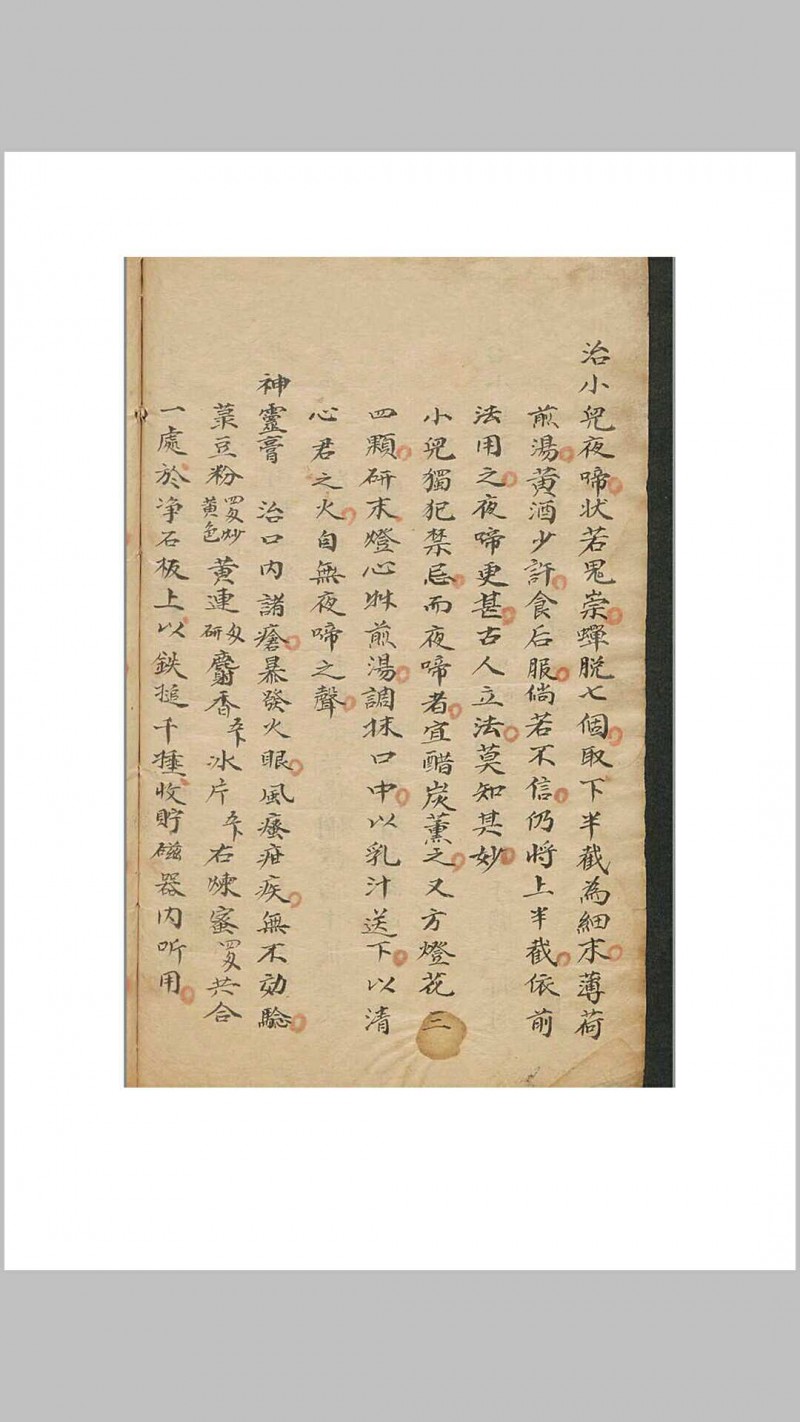 治小兒夜啼状若鬼祟蟬脱七個取下半截為細末薄荷
煎湯黄酒少許食后服倘若不信仍将上半截依前
法用之夜啼更甚古人立法莫知其妙
小兒獨犯禁忌而夜啼者宜醋炭薰之又方燈花三
四顆研末燈心煎湯調抹口中以乳汁送下以清
心君之火自無夜啼之聲
神靈膏 治口内諸瘡暴發火眼風瘙疳疾無不効驗
菉豆粉 炒黄色 黄連 研 麝香 冰片 右煉蜜 共合
一處於净石板上以鉄搥千搥收貯磁器内听用